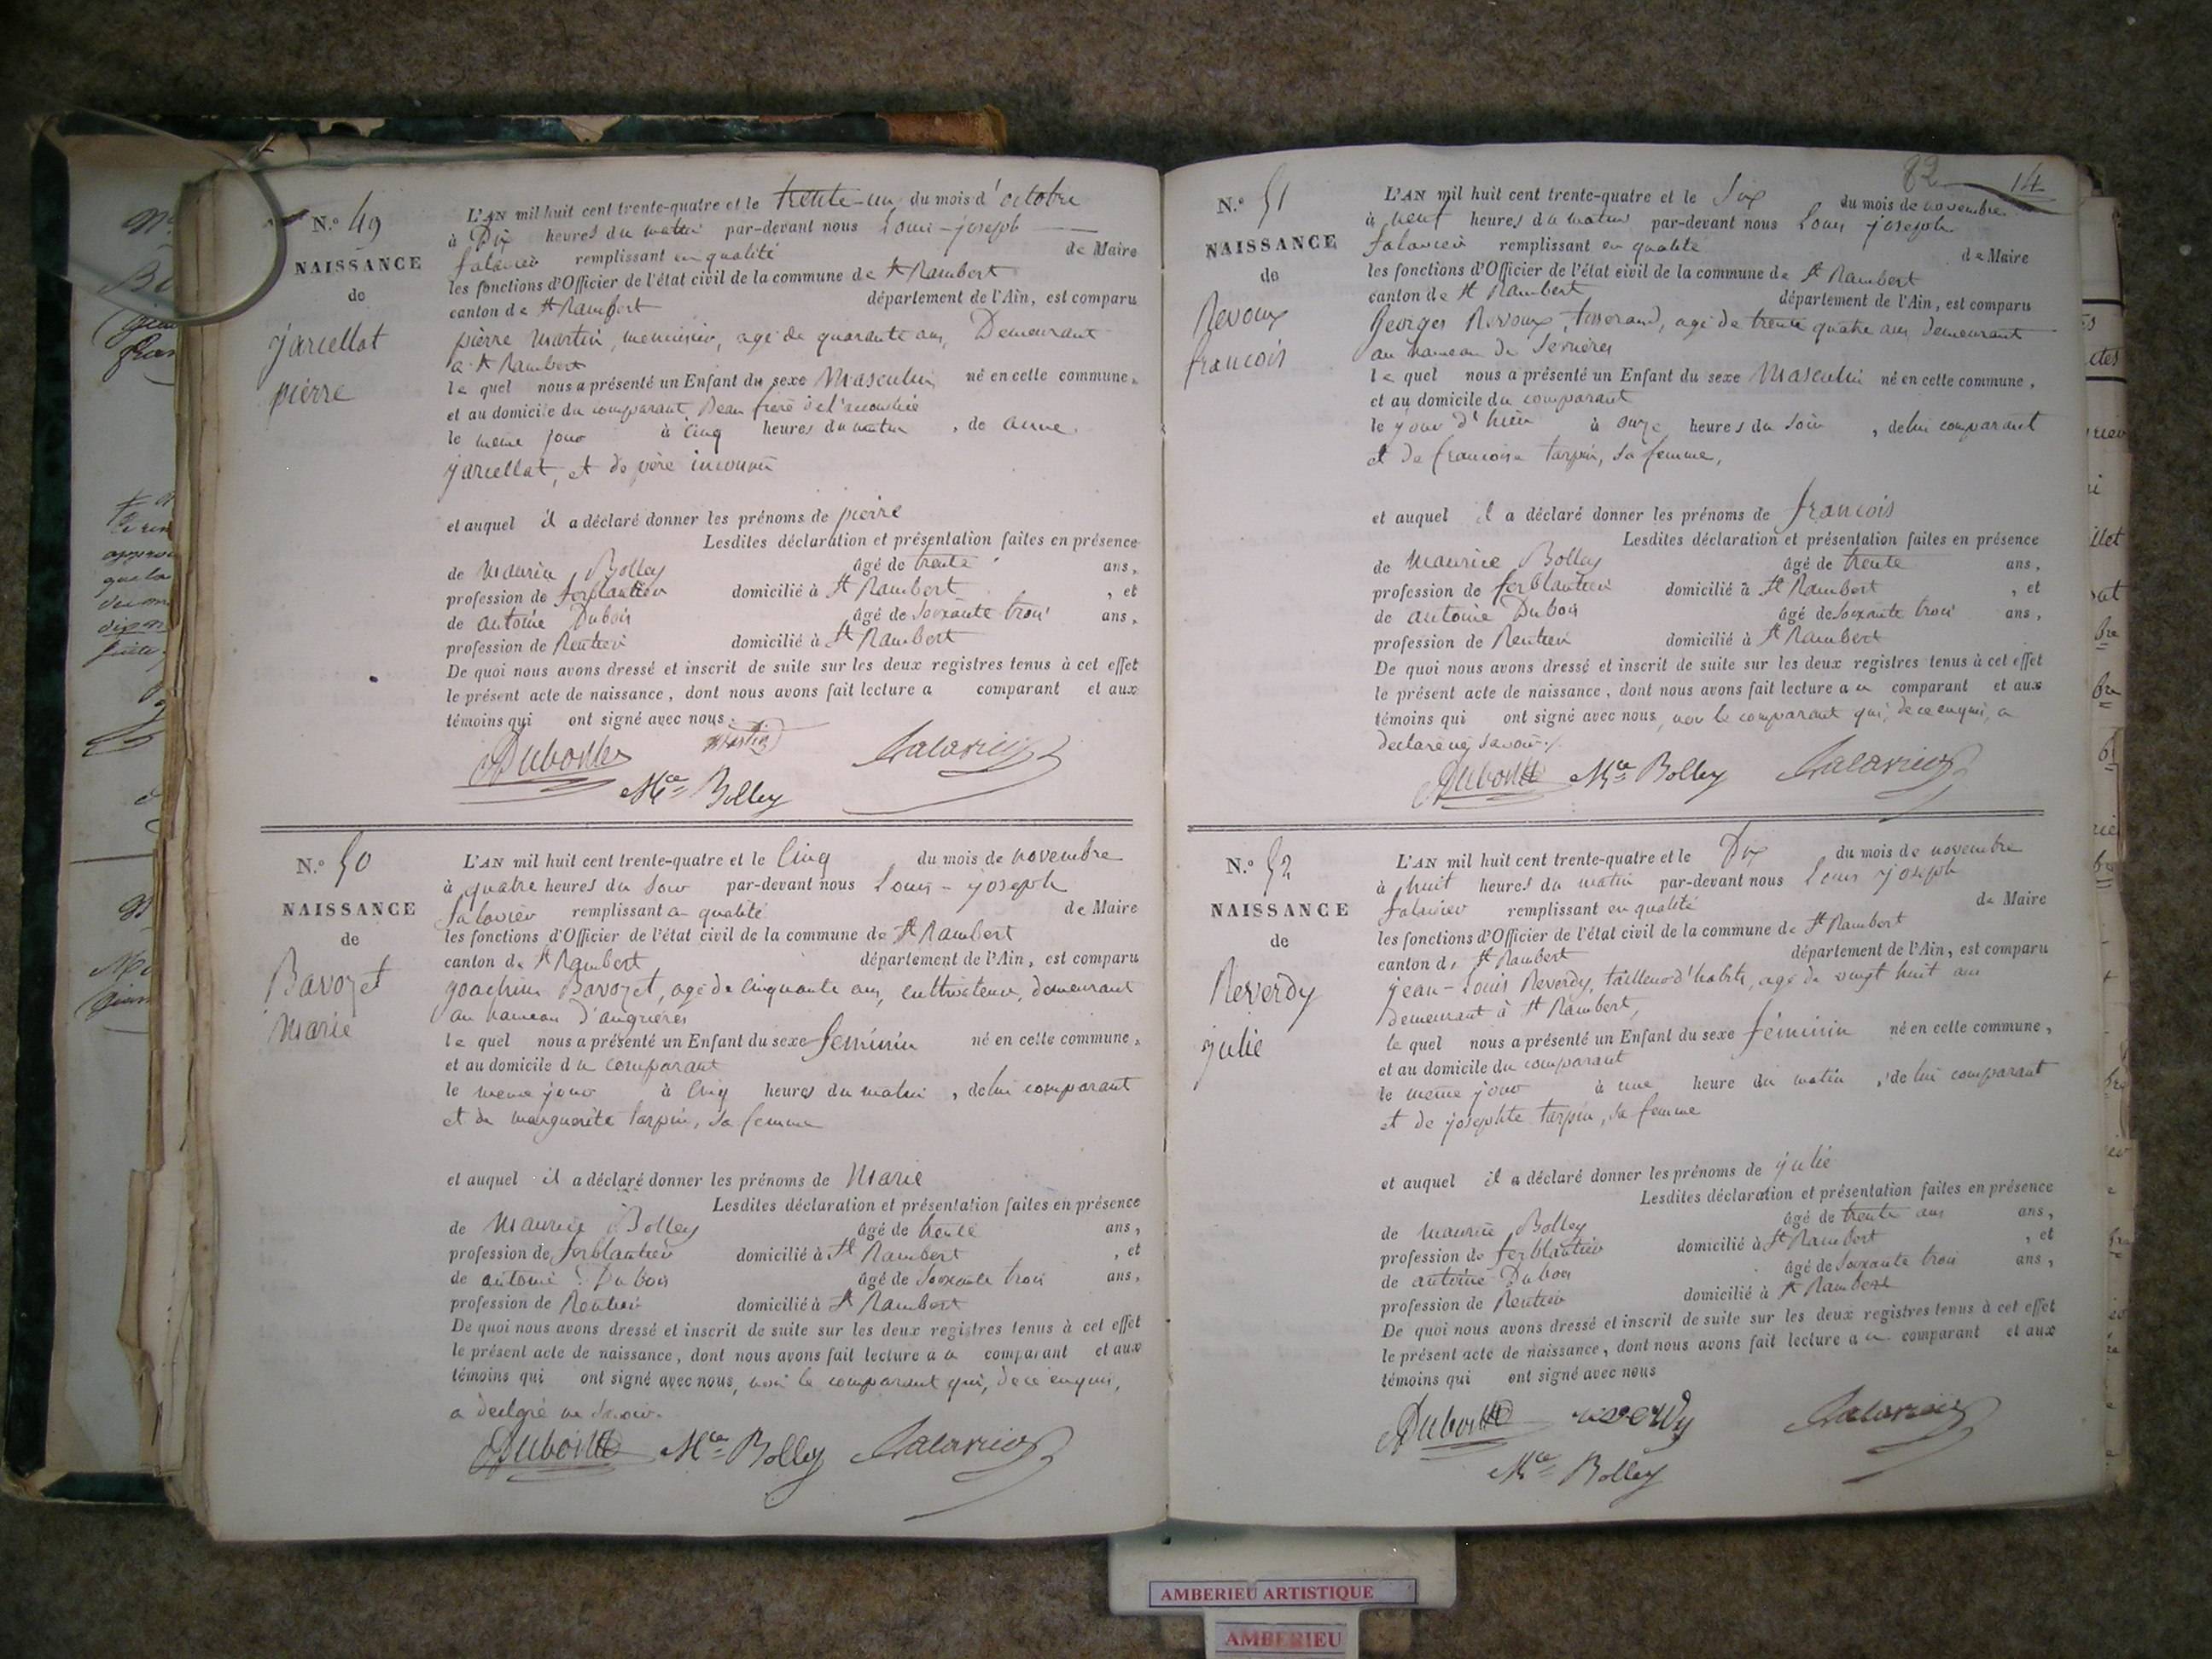 N.º 49
NAISSANCE
de
jarcellat
pierre
L'AN mil huit cent trente-quatre et le trente-un du mois d'octobre
à Dix heures du matin par-devant nous Louis-joseph
falavier remplissant en qualité de Maire
les fonctions d'Officier de l'état civil de la commune de St Rambert
canton de St Rambert département de l'Ain, est comparu
pierre Martin, menuisier, agé de quarante ans, Demeurant
a St Rambert
le quel nous a présenté un Enfant du sexe Masculin né en cette commune,
et au domicile du comparant, Beau frere de l'accouchée
le meme jour à cinq heures du matin, de anne
jarcellat, et de père inconnu
et auquel il a déclaré donner les prénoms de pierre
Lesdites déclaration et présentation faites en présence
de Maurice Bolley âgé de trente ans,
profession de ferblantier domicilié à St Rambert, et
de antoine Dubois âgé de soixante trois ans,
profession de Rentier domicilié à St Rambert
De quoi nous avons dressé et inscrit de suite sur les deux registres tenus à cet effet
le présent acte de naissance, dont nous avons fait lecture a comparant et aux
témoins qui ont signé avec nous.
Dubois Martin
Mce Bolley
N.º 50
NAISSANCE
de
Bavozet
Marie
L'AN mil huit cent trente-quatre et le Cinq du mois de novembre
à quatre heures du soir par-devant nous Louis-joseph
falavier remplissant en qualité de Maire
les fonctions d'Officier de l'état civil de la commune de St Rambert
canton de St Rambert département de l'Ain, est comparu
joachim Bavozet, agé de cinquante ans, cultivateur, demeurant
au hameau d'angrieres
le quel nous a présenté un Enfant du sexe feminin né en cette commune,
et au domicile du comparant
le meme jour à cinq heures du matin, de lui comparant
et de marguerite tarpin, sa femme
et auquel il a déclaré donner les prénoms de Marie
Lesdites déclaration et présentation faites en présence
de Maurice Bolley âgé de trente ans,
profession de ferblantier domicilié à St Rambert, et
de antoine Dubois âgé de soixante trois ans,
profession de Rentier domicilié à St Rambert
De quoi nous avons dressé et inscrit de suite sur les deux registres tenus à cet effet
le présent acte de naissance, dont nous avons fait lecture a u comparant et aux
témoins qui ont signé avec nous, non le comparant qui, de ce enquis,
a declaré ne savoir.
Dubois Mce Bolley
82 14
N.º 51
NAISSANCE
de
Revoux
francois
L'AN mil huit cent trente-quatre et le Six du mois de novembre
à neuf heures du matin par-devant nous Louis joseph
falavier remplissant en qualité de Maire
les fonctions d'Officier de l'état civil de la commune de St Rambert
canton de St Rambert département de l'Ain, est comparu
Georges Revoux, tisserand, agé de trente quatre ans, demeurant
au hameau de Serrieres
le quel nous a présenté un Enfant du sexe Masculin né en cette commune,
et au domicile du comparant
le jour d'hier à onze heures du soir, de lui comparant
et de francoise tarpin, sa femme,
et auquel il a déclaré donner les prénoms de francois
Lesdites déclaration et présentation faites en présence
de Maurice Bolley âgé de trente ans,
profession de ferblantier domicilié à St Rambert, et
de antoine Dubois âgé de soixante trois ans,
profession de Rentier domicilié à St Rambert
De quoi nous avons dressé et inscrit de suite sur les deux registres tenus à cet effet
le présent acte de naissance, dont nous avons fait lecture a u comparant et aux
témoins qui ont signé avec nous, non le comparant qui, de ce enquis, a
declaré ne savoir.
Dubois Mce Bolley
N.º 52
NAISSANCE
de
Reverdy
julie
L'AN mil huit cent trente-quatre et le Dix du mois de novembre
à huit heures du matin par-devant nous Louis joseph
falavier remplissant en qualité de Maire
les fonctions d'Officier de l'état civil de la commune de St Rambert
canton de St Rambert département de l'Ain, est comparu
jean-Louis Reverdy, tailleur d'habits, agé de vingt huit ans
demeurant à St Rambert,
le quel nous a présenté un Enfant du sexe féminin né en cette commune,
et au domicile du comparant
le meme jour à une heure du matin, de lui comparant
et de josephte tarpin, sa femme
et auquel il a déclaré donner les prénoms de julie
Lesdites déclaration et présentation faites en présence
de Maurice Bolley âgé de trente ans ans,
profession de ferblantier domicilié à St Rambert, et
de antoine Dubois âgé de soixante trois ans,
profession de Rentier domicilié à St Rambert
De quoi nous avons dressé et inscrit de suite sur les deux registres tenus à cet effet
le présent acte de naissance, dont nous avons fait lecture a u comparant et aux
témoins qui ont signé avec nous
Dubois reverdy
Mce Bolley
AMBERIEU ARTISTIQUE
AMBERIEU